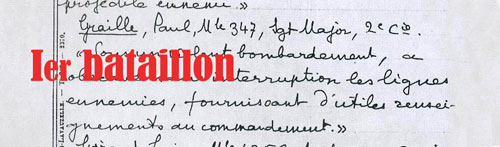 projectile ennemi. »
Graille, Paul, Mle 347, Sgt Major, 2e Cie.
bombardement, a
Ier bataillon
interruption les lignes
ennemies, fournissant d'utiles rensei-
gnements au commandement. »